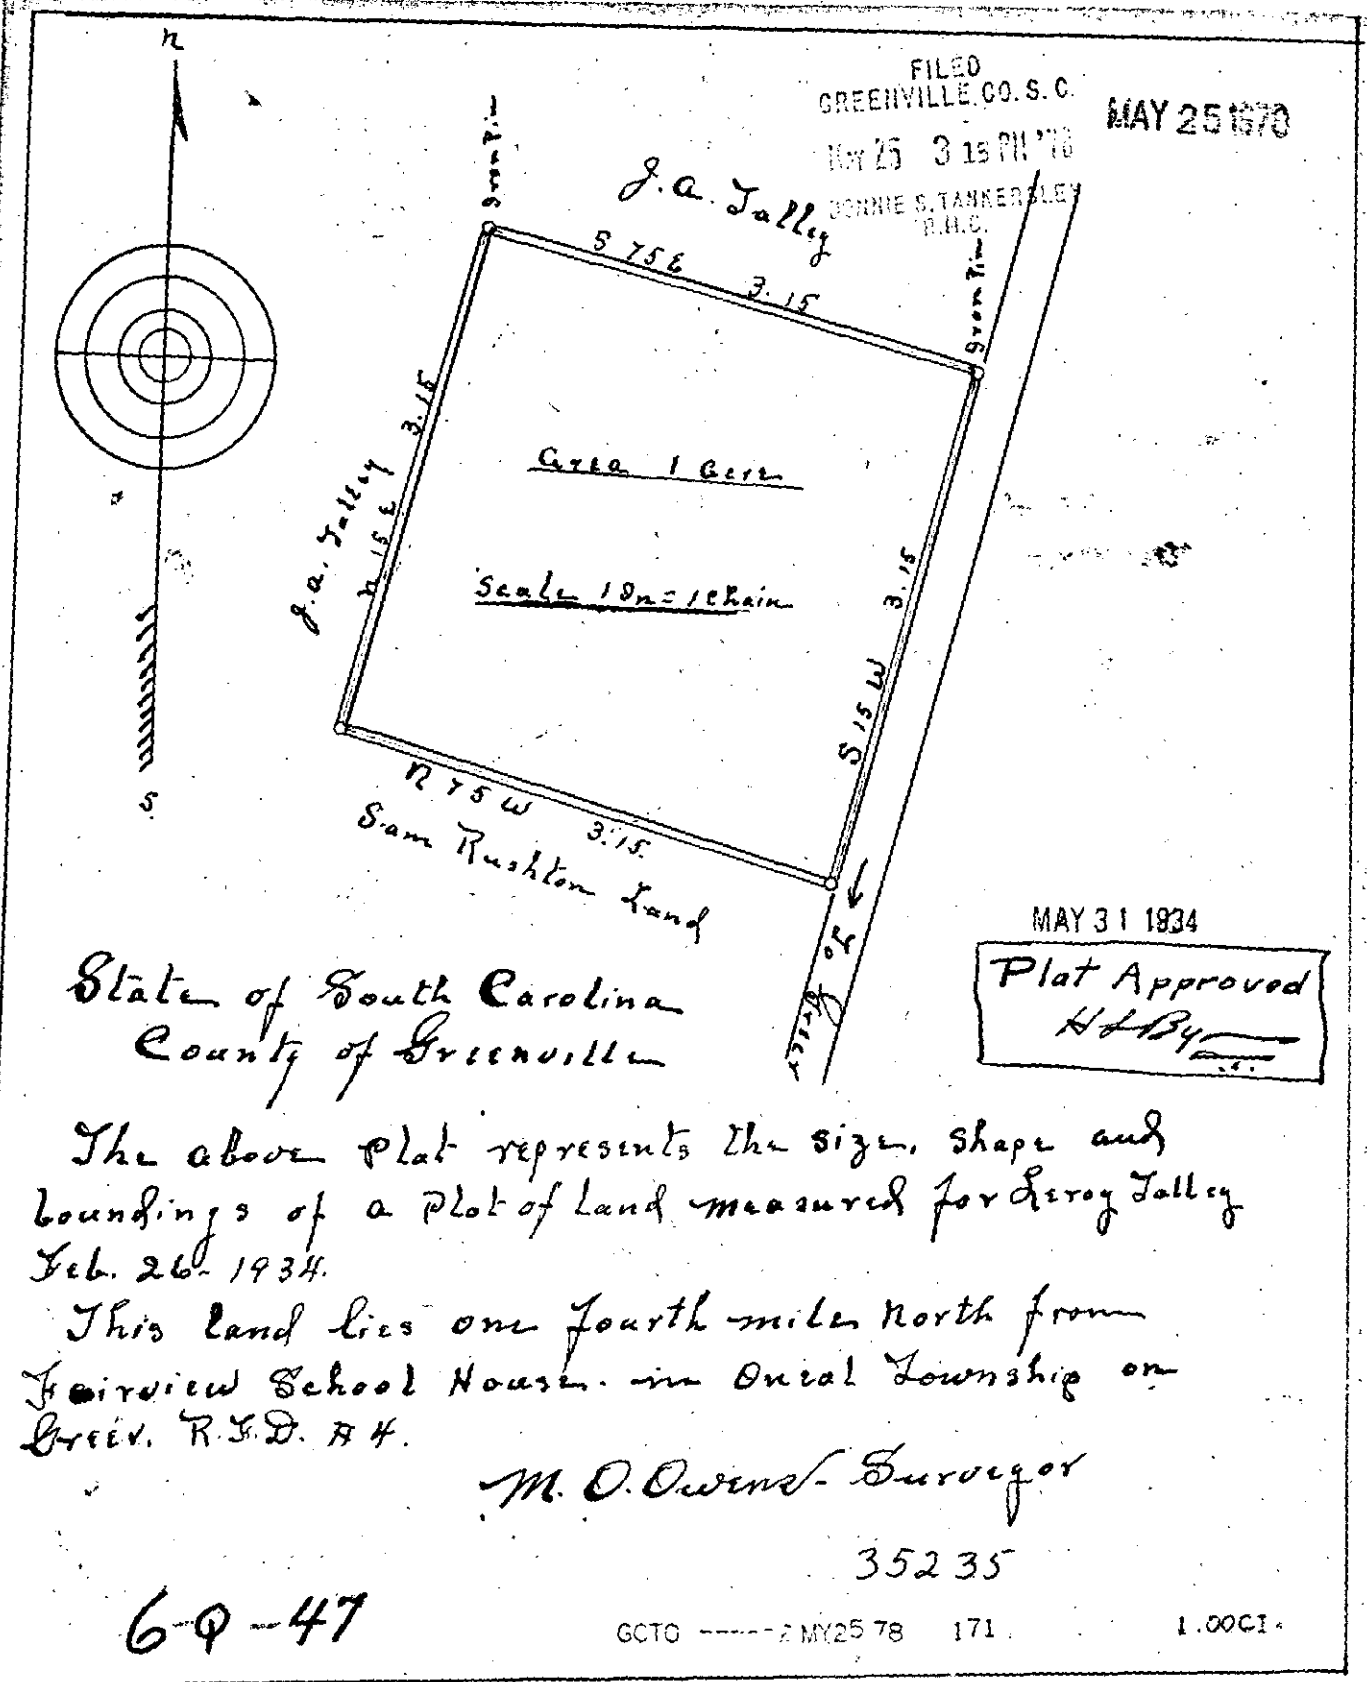 n
FILED
GREENVILLE CO. S. C.
MAY 25 1978
MAY 25 3 15 PM '78
DONNIE S. TANKERSLEY
R.M.C.
Iron Pin
J. A. Talley
S 75 E 3.15
Iron Pin
J. A. Talley
N 15 E 3.15
Area 1 Acre
Scale 1 In = 1 Chain
S 15 W 3.15
N 75 W 3.15
Sam Rushton Land
S
To Greer
MAY 31 1934
Plat Approved
State of South Carolina
County of Greenville
The above Plat represents the size, shape and
boundings of a Plot of land measured for Leroy Talley
Feb. 26 - 1934.
This land lies one fourth mile North from
Fairview School House. in Oneal Township on
Greer. R.F.D. # 4.
M. O. Owens - Surveyor
35235
6-Q-47
GCTO ----- 2 MY25 78 171
1.00CI.